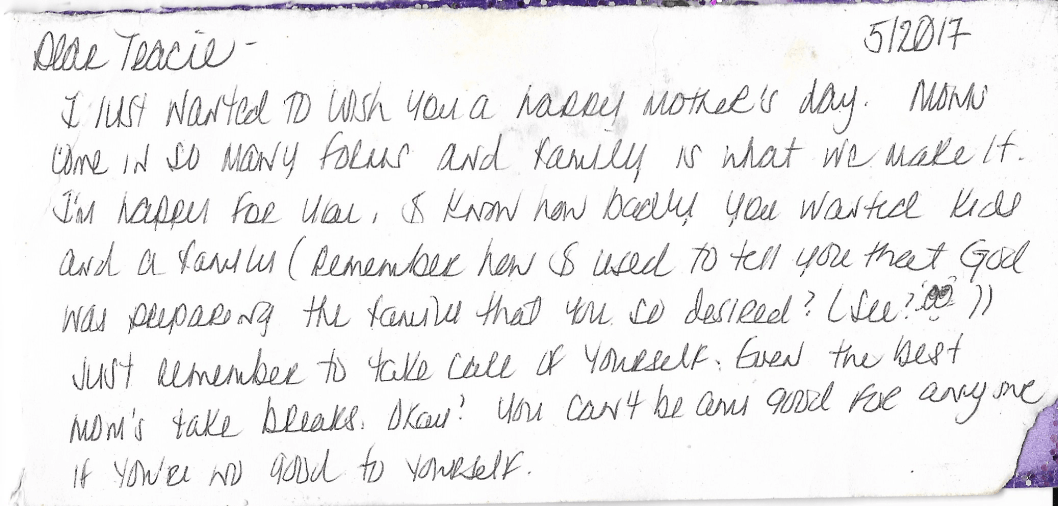 Dear Tracie - 5/2017
I just wanted to wish you a happy mother's day. Moms
come in so many forms and family is what we make it.
I'm happy for you. I know how badly you wanted kids
and a family (Remember how I used to tell you that God
was preparing the family that you so desired? (See? ))
Just remember to take care of yourself. Even the best
mom's take breaks. Okay? You can't be any good for anyone
if you're no good to yourself.